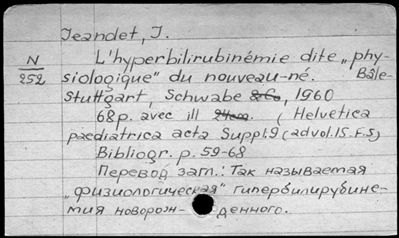 Jeandet, J.
N
252
L'hyperbilirubinémie dite „phy-
siologique" du nouveau-né. Bâle-
Stuttgart, Schwabe & Co, 1960
68p. avec ill ( Helvetica
paediatrica acta Suppl.9 (ad vol.15.F.5)
Bibliogr. p. 59-68
Перевод загл.: Так называемая
„физиологическая" гипербилирубине-
мия новорож- денного.